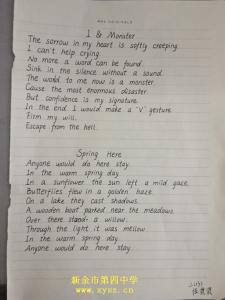 I & Monster
The sorrow in my heart is softly creeping.
I can't help crying.
No more a word can be found.
Sink in the silence without a sound.
The world to me now is a monster.
Cause the most enormous disaster.
But confidence is my signature.
In the end I would make a "V" gesture.
Firm my will.
Escape from the hell.
Spring Here
Anyone would do here stay.
In the warm spring day.
In a sunflower the sun left a mild gaze.
Butterflies flew in a golden haze.
On a lake they cast shadows.
A wooden boat parked near the meadows.
Over there stand a willow.
Through the light it was mellow.
In the warm spring day.
Anyone would do here stay.
新余市第四中学
www.xysz.cn